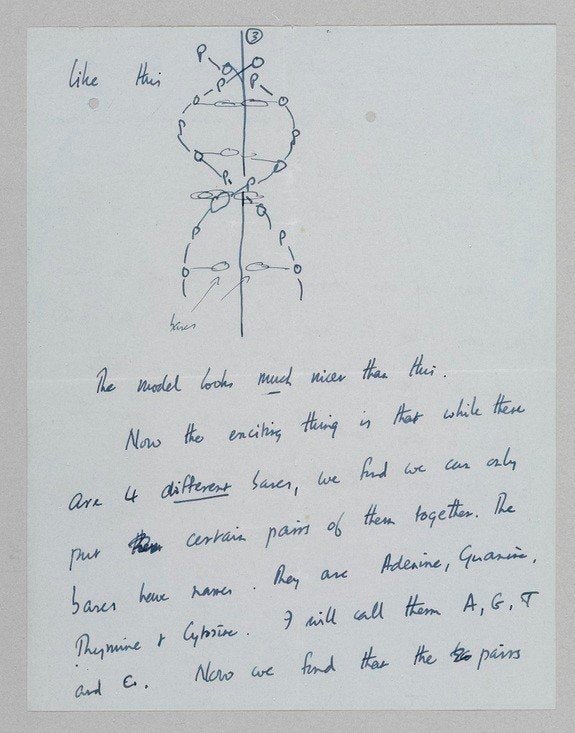 ③
like this
P
P
P
O
O
O
O
P
P
O
O
P
P
O
P
P
O
O
bases
The model looks much nicer than this.
Now the exciting thing is that while there
are 4 different bases, we find we can only
put certain pairs of them together. The
bases have names. They are Adenine, Guanine,
Thymine & Cytosine. I will call them A, G, T
and C. Now we find that the pairs